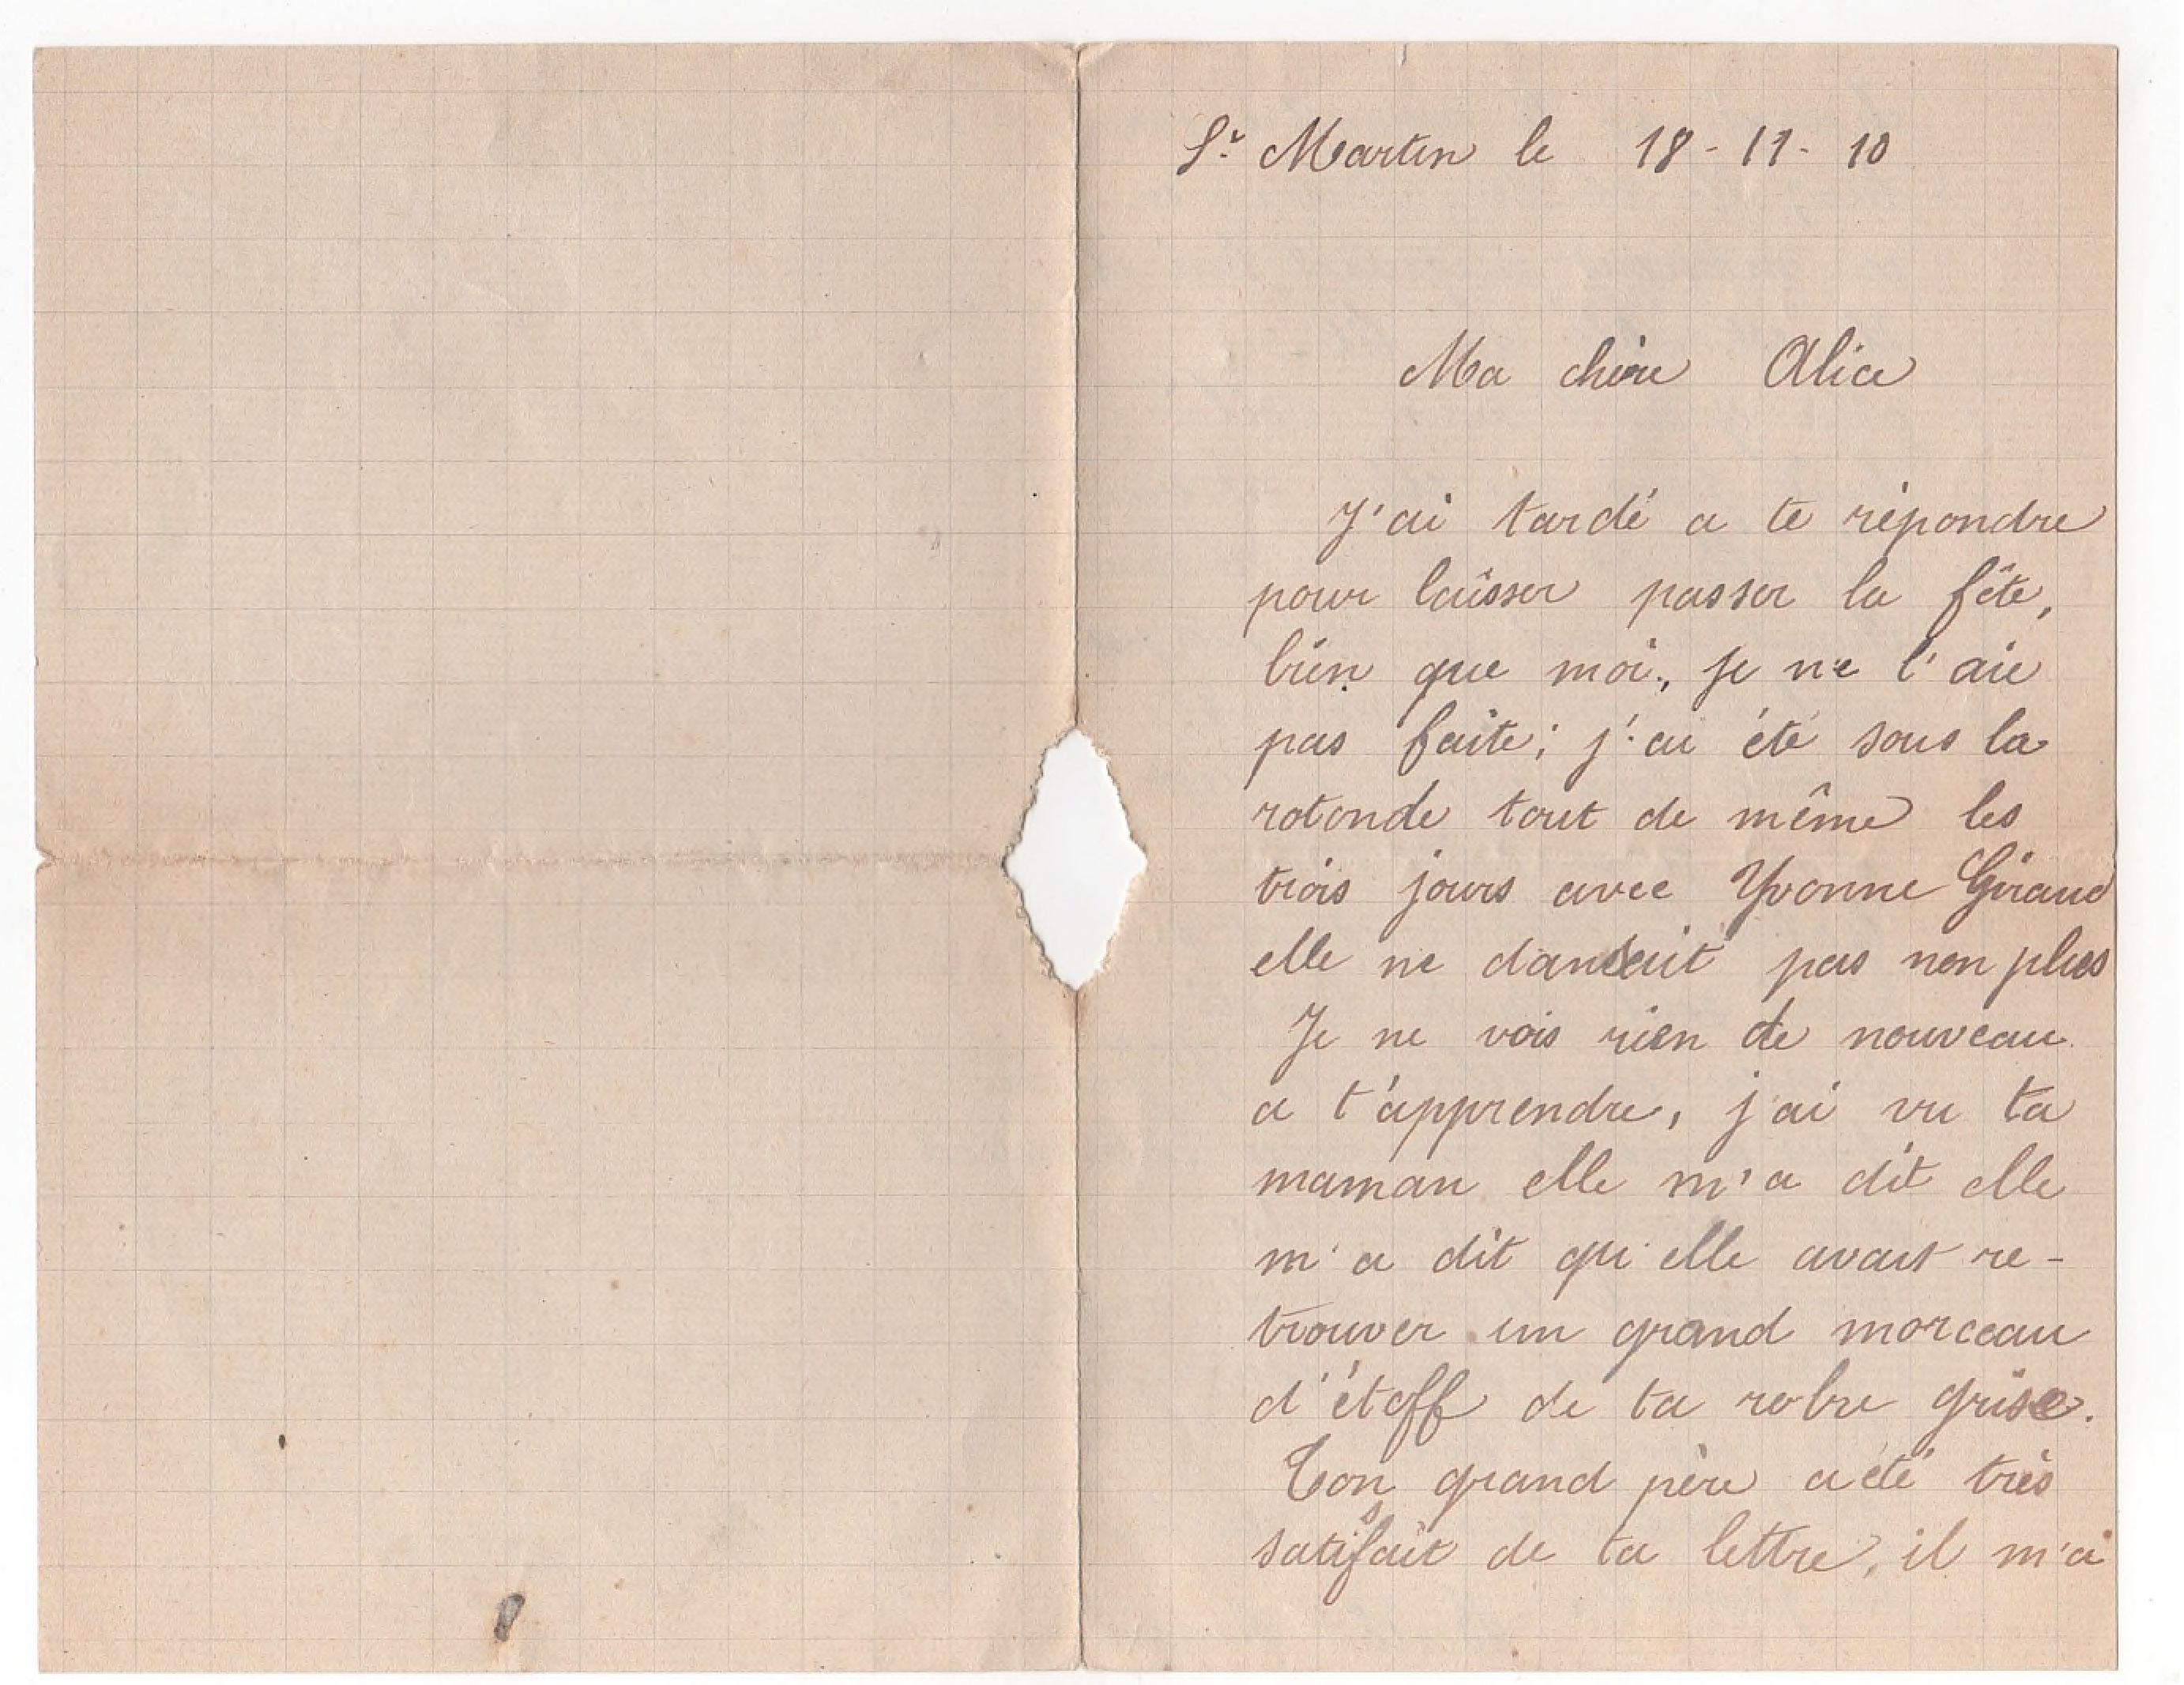 St Martin le 18-11-10
Ma chère Alice
J'ai tardé a te répondre
pour laisser passer la fête,
bien que moi, je ne l'aie
pas faite; j'ai été sous la
rotonde tout de même les
trois jours avec Yvonne Giraud
elle ne dansait pas non plus
Je ne vois rien de nouveau
a t'apprendre, j'ai vu ta
maman elle m'a dit elle
m'a dit qu'elle avait re-
trouver un grand morceau
d'étoff de ta robre grise.
Ton grand père a été très
satisfait de ta lettre, il m'a